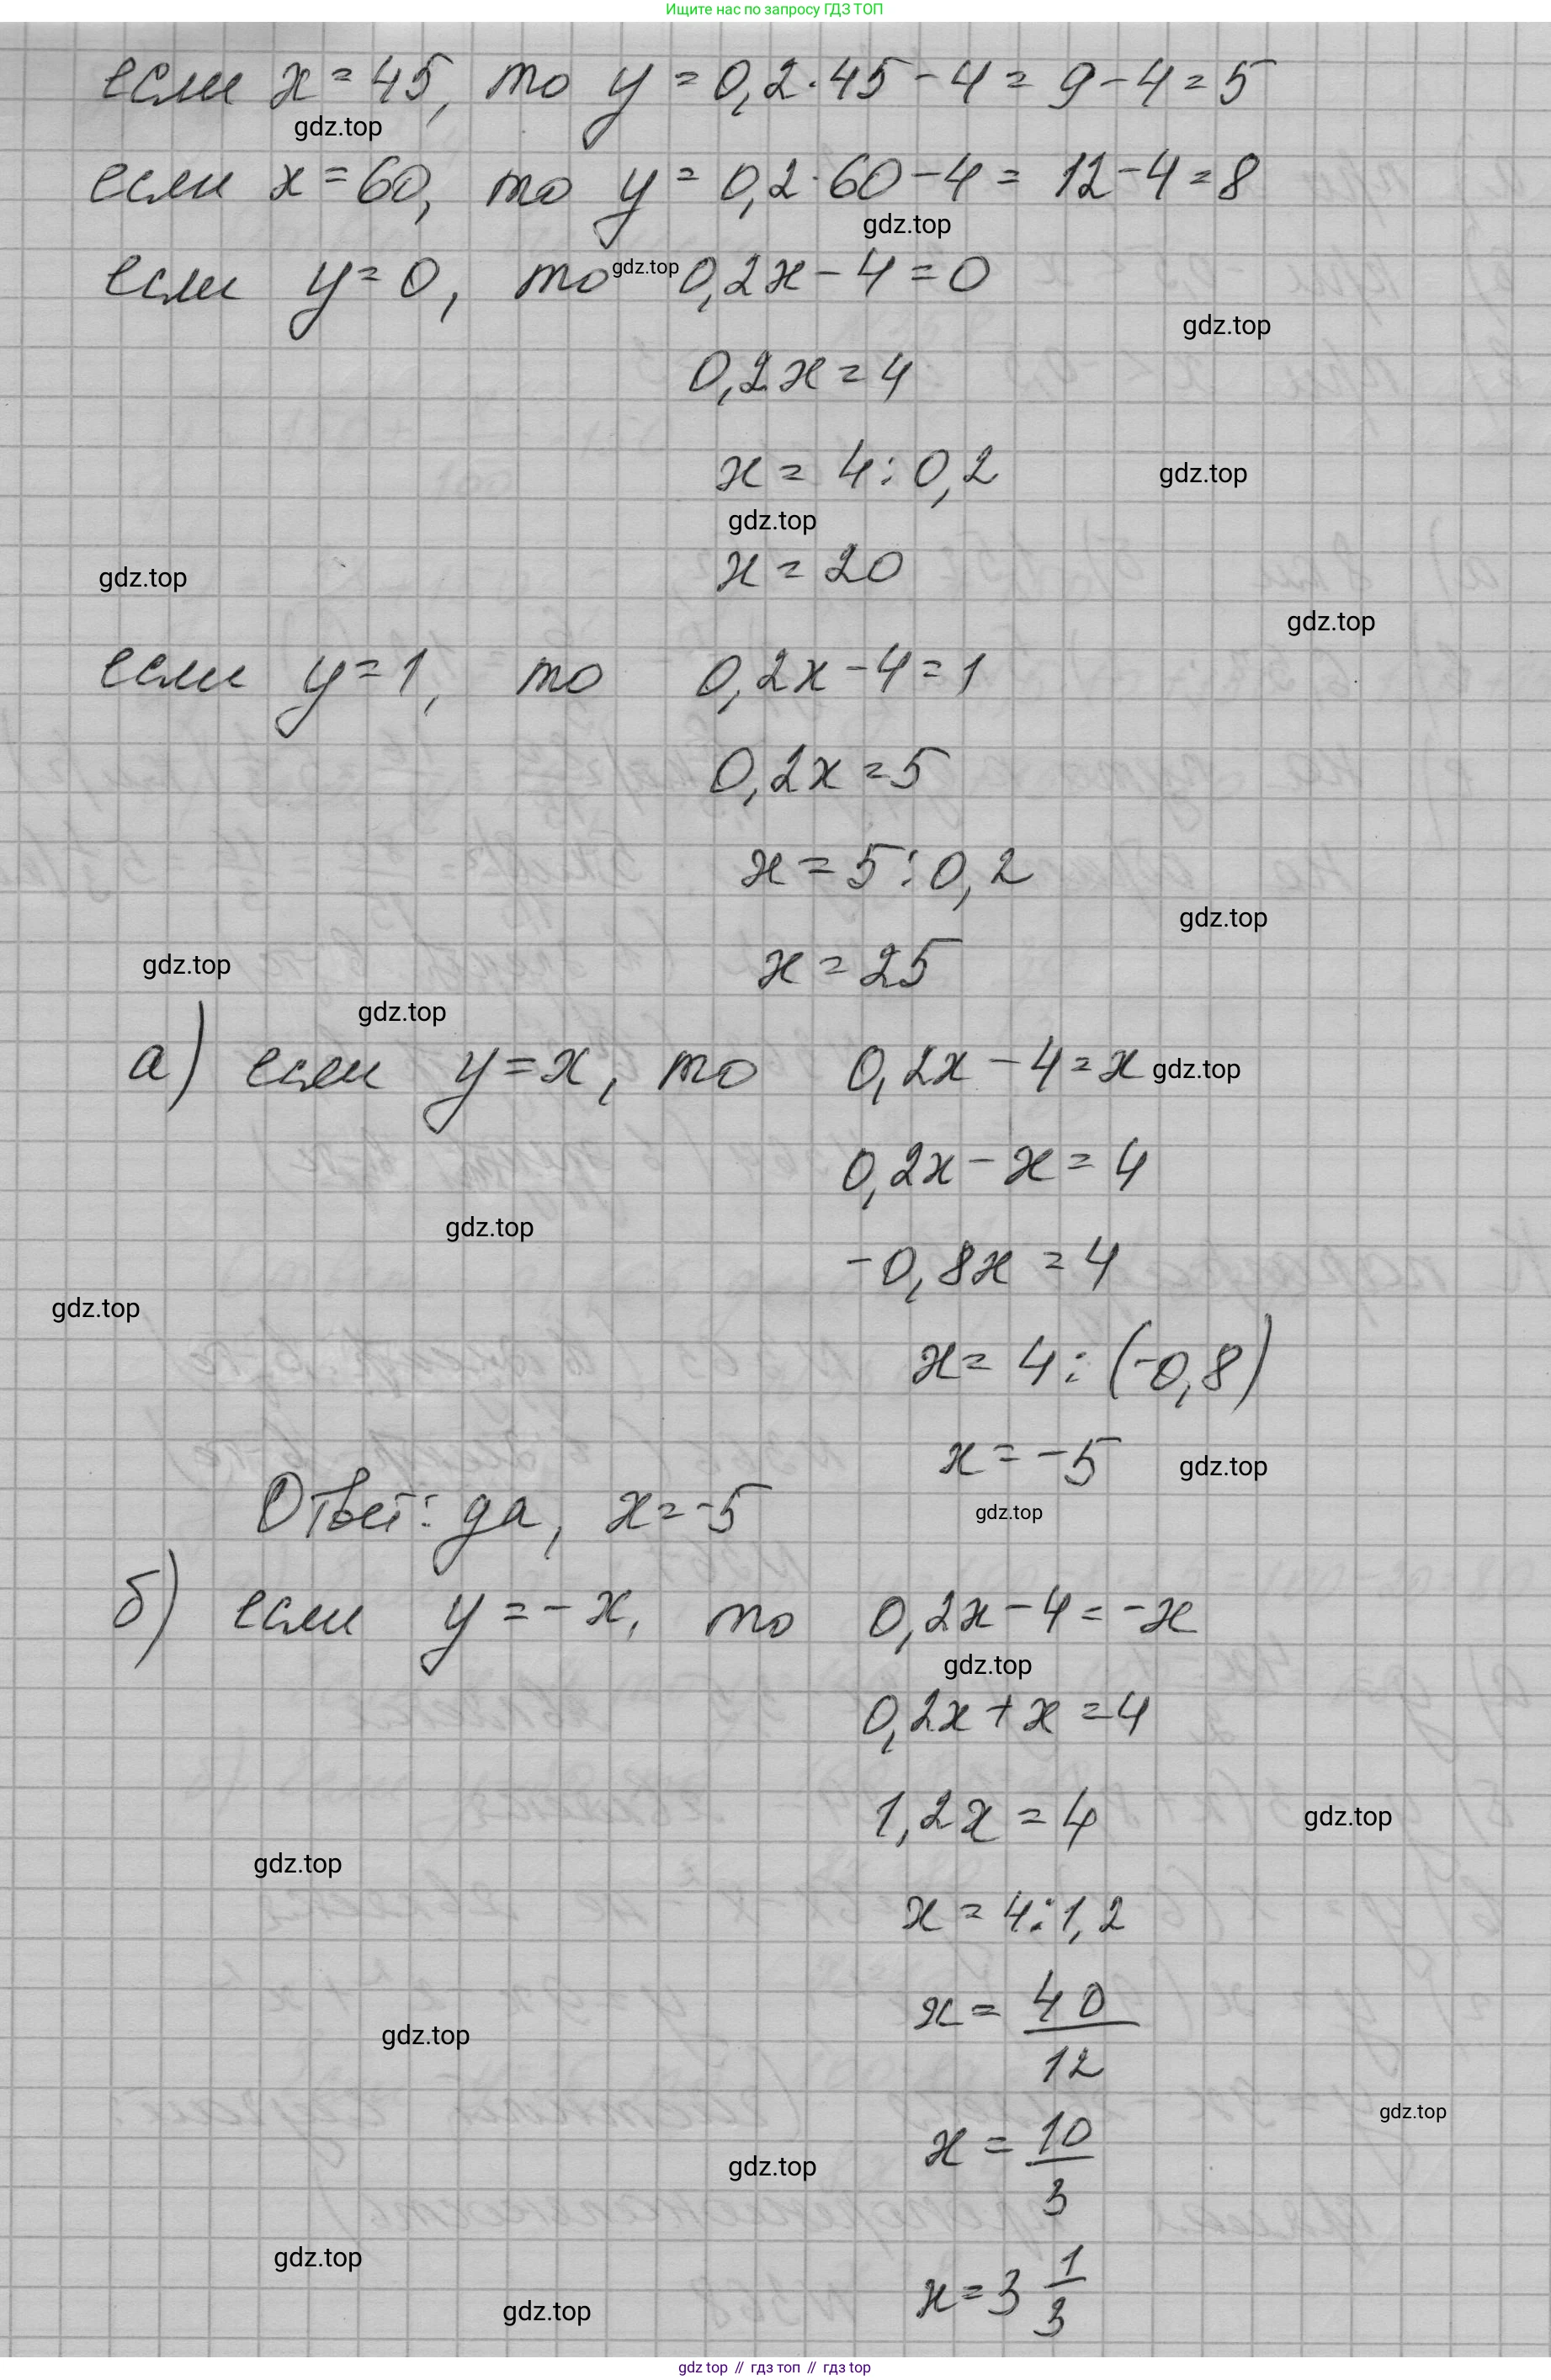 Ищите нас по запросу ГДЗ ТОП
если x = 45, то y = 0,2·45 - 4 = 9 - 4 = 5
gdz.top
если x = 60, то y = 0,2·60 - 4 = 12 - 4 = 8
gdz.top
если y = 0, то gdz.top 0,2x - 4 = 0
gdz.top
0,2x = 4
x = 4 : 0,2 gdz.top
gdz.top
gdz.top x = 20
gdz.top
если y = 1, то 0,2x - 4 = 1
0,2x = 5
x = 5 : 0,2
gdz.top
gdz.top x = 25
gdz.top
а) если y = x, то 0,2x - 4 = x gdz.top
0,2x - x = 4
gdz.top
-0,8x = 4
gdz.top
x = 4 : (-0,8)
x = -5 gdz.top
gdz.top
Ответ: да, x = -5
б) если y = -x, то 0,2x - 4 = -x
gdz.top
0,2x + x = 4
1,2x = 4 gdz.top
gdz.top
x = 4 : 1,2
x = 40/12
gdz.top
gdz.top
x = 10/3
gdz.top
gdz.top
x = 3 1/3
gdz.top
gdz top // гдз топ // гдз top